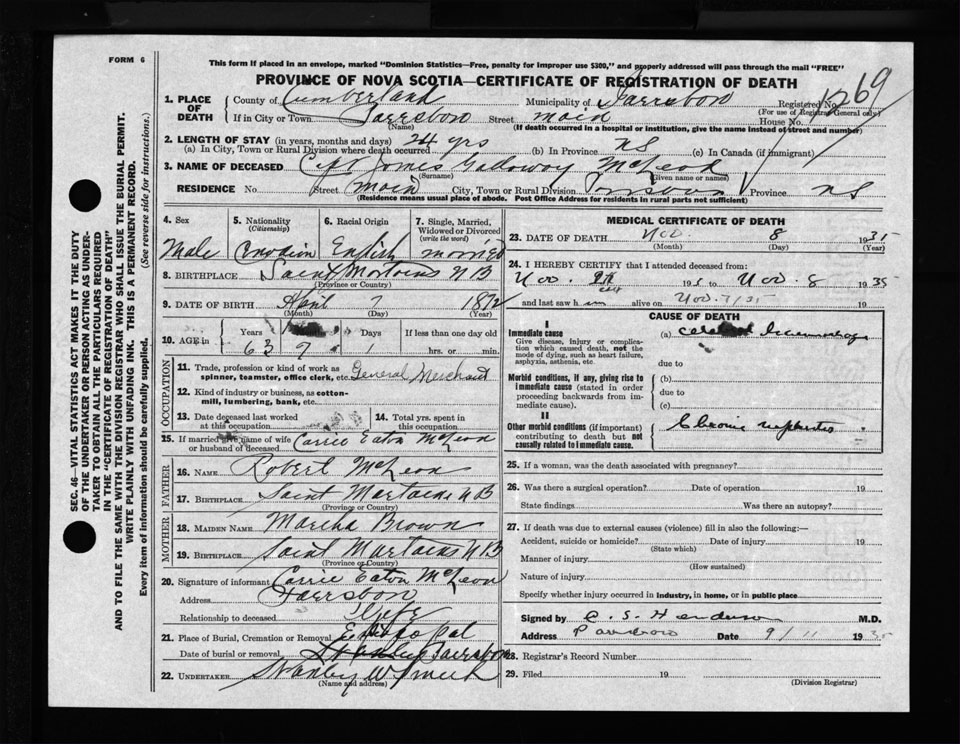 FORM 6
This form if placed in an envelope, marked "Dominion Statistics—Free, penalty for improper use $300," and properly addressed will pass through the mail "FREE"
PROVINCE OF NOVA SCOTIA—CERTIFICATE OF REGISTRATION OF DEATH
1. PLACE OF DEATH
County of Cumberland Municipality of Parrsboro Registered No. 1269
(For use of Registrar General only)
If in City or Town Parrsboro Street main House No.
(Name) (If death occurred in a hospital or institution, give the name instead of street and number)
2. LENGTH OF STAY (in years, months and days) 34 yrs
(a) In City, Town or Rural Division where death occurred (b) In Province NS (c) In Canada (if immigrant)
3. NAME OF DECEASED Capt James Galoway McLeod
(Surname) (Given name or names)
RESIDENCE No. Street main City, Town or Rural Division Parrsboro Province NS
(Residence means usual place of abode. Post Office Address for residents in rural parts not sufficient)
4. Sex
Male
5. Nationality
(Citizenship)
6. Racial Origin
English
7. Single, Married, Widowed or Divorced
(write the word)
married
8. BIRTHPLACE Saint Martains NB
(Province or Country)
9. DATE OF BIRTH April 7 1872
(Month) (Day) (Year)
10. AGE in Years Days If less than one day old
63 7 1 hrs. or min.
OCCUPATION
11. Trade, profession or kind of work as spinner, teamster, office clerk, etc. General Merchant
12. Kind of industry or business, as cotton-mill, lumbering, bank, etc.
13. Date deceased last worked at this occupation
14. Total yrs. spent in this occupation
15. If married give name of wife or husband of deceased Carrie Eaton McLeod
FATHER
16. NAME Robert McLeod
17. BIRTHPLACE Saint Martains NB
MOTHER
18. MAIDEN NAME Martha Brown
19. BIRTHPLACE Saint Martains NB
(Province or Country)
20. Signature of informant Carrie Eaton McLeod
Address Parrsboro
Relationship to deceased Wife
21. Place of Burial, Cremation or Removal
Date of burial or removal Parrsboro
22. UNDERTAKER Stanley W Smith
(Name and address)
MEDICAL CERTIFICATE OF DEATH
23. DATE OF DEATH Nov. 8 1935
(Month) (Day) (Year)
24. I HEREBY CERTIFY that I attended deceased from:
Nov. 193 to Nov. 8 1935
and last saw h im alive on Nov. 7/35
CAUSE OF DEATH
I
Immediate cause
Give disease, injury or complication which caused death, not the mode of dying, such as heart failure, asphyxia, asthenia, etc.
(a) cerebral haemorrhage
due to
Morbid conditions, if any, giving rise to immediate cause (stated in order proceeding backwards from immediate cause).
(b)
due to
(c)
II
Other morbid conditions (if important) contributing to death but not causally related to immediate cause.
Chronic nephritis
25. If a woman, was the death associated with pregnancy?
26. Was there a surgical operation? Date of operation 19
State findings Was there an autopsy?
27. If death was due to external causes (violence) fill in also the following:—
Accident, suicide or homicide? Date of injury 19
(State which)
Manner of injury
(How sustained)
Nature of injury
Specify whether injury occurred in industry, in home, or in public place
Signed by C. S. Henderson M.D.
Address Parrsboro Date 9/11 1935
28. Registrar's Record Number
29. Filed 19
(Division Registrar)
SEC. 46—VITAL STATISTICS ACT MAKES IT THE DUTY
OF THE UNDERTAKER OR PERSON ACTING AS UNDER-
TAKER TO OBTAIN ALL THE PARTICULARS REQUIRED
IN THE "CERTIFICATE OF REGISTRATION OF DEATH"
AND TO FILE THE SAME WITH THE DIVISION REGISTRAR WHO SHALL ISSUE THE BURIAL PERMIT.
WRITE PLAINLY WITH UNFADING INK. THIS IS A PERMANENT RECORD.
Every item of information should be carefully supplied. (See reverse side for instructions.)